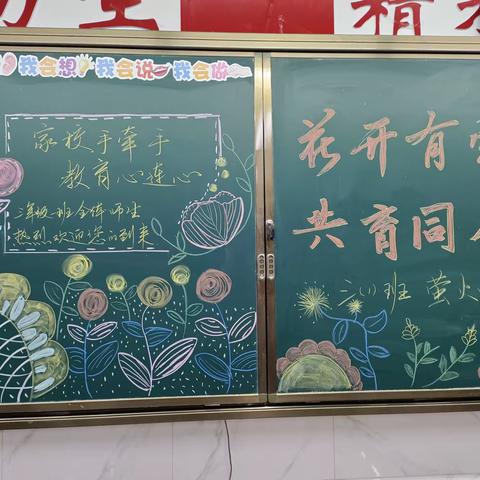 精
我会想 我会说 我会做
家校手牵手
教育心连心
三年级一班全体师生
热烈欢迎您的到来
花开有
共育同
三(1)班 萤火